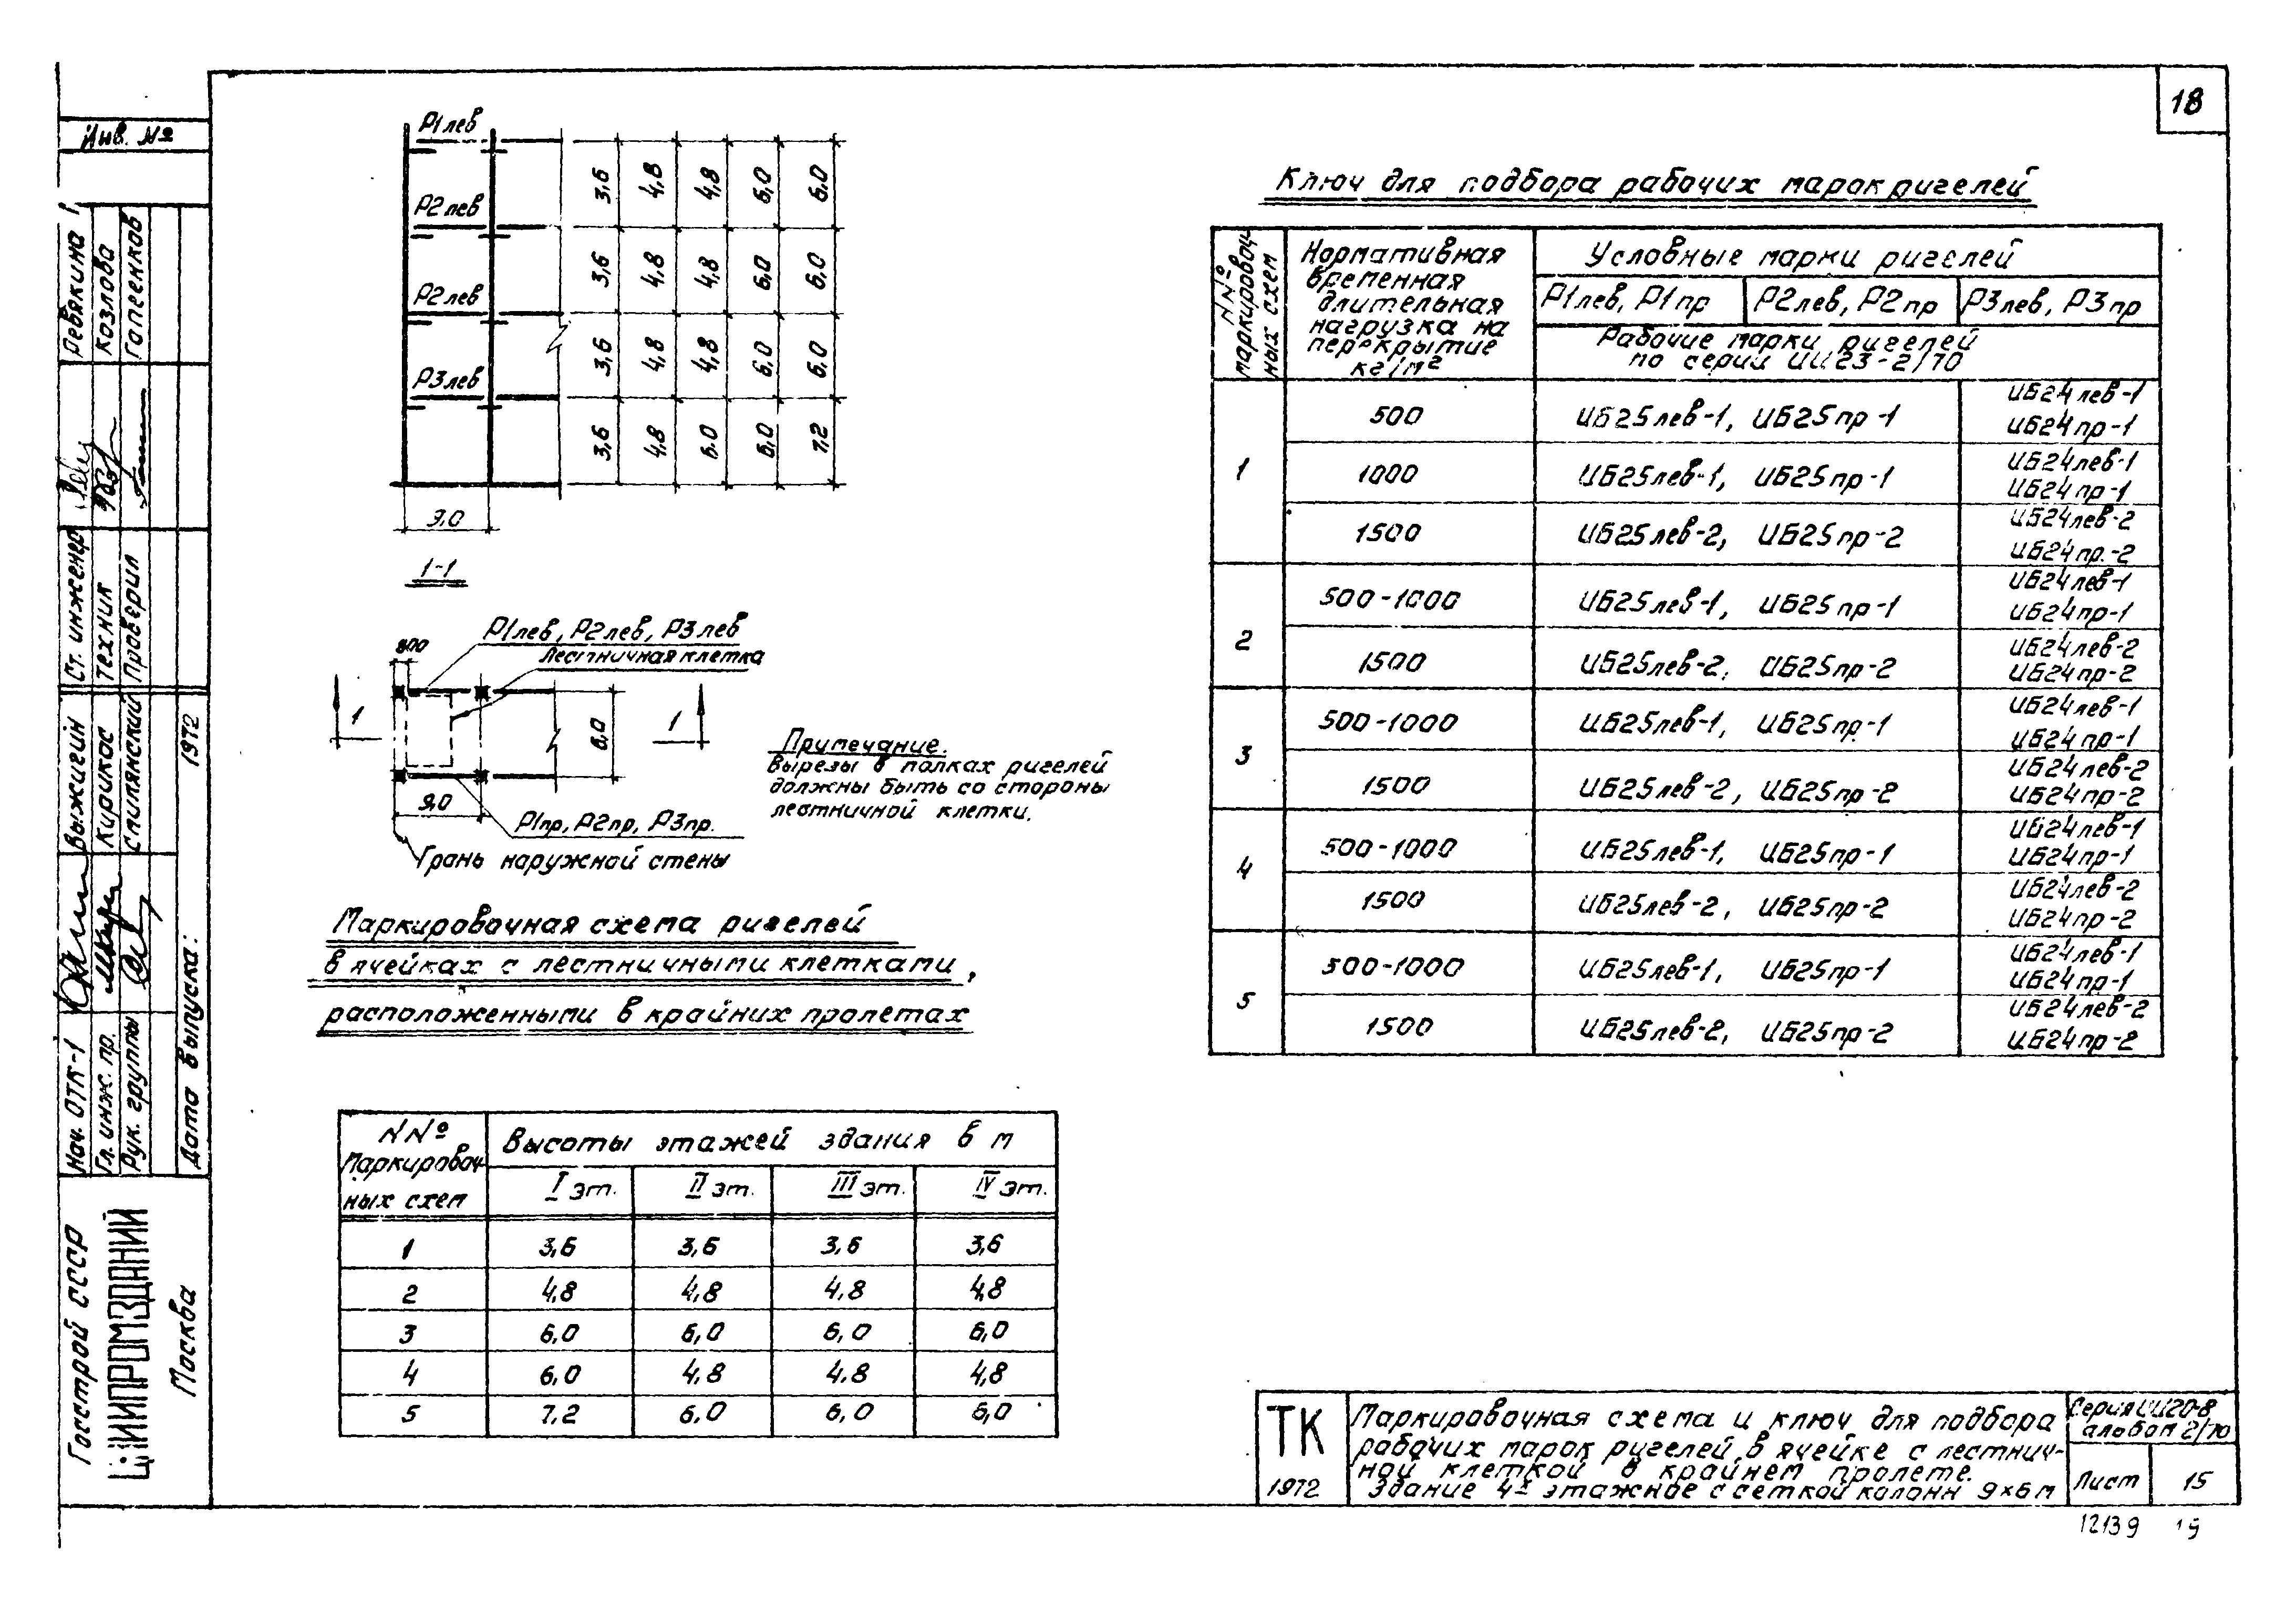 18
Инв. №
Ревякина
Козлова
Ст. инженер
Техник
Проверил
Выжигин
Кирикас
Спилянский
1972
Нач. ОТК-1
Гл. инж. пр.
Рук. группы
Дата выпуска:
Госстрой СССР
ЦНИИПРОМЗДАНИЙ
Москва
Р1лев
Р2лев
Р2лев
Р3лев
3,6 4,8 4,8 6,0 6,0
3,6 4,8 4,8 6,0 6,0
3,6 4,8 4,8 6,0 6,0
3,6 4,8 6,0 6,0 7,2
9,0
1-1
Р1лев, Р2лев, Р3лев
Лестничная клетка
800
1
1
6,0
9,0
Р1пр, Р2пр, Р3пр.
Грань наружной стены
Примечание.
Вырезы в полках ригелей
должны быть со стороны
лестничной клетки.
Маркировочная схема ригелей
в ячейках с лестничными клетками,
расположенными в крайних пролетах
NNº Маркировочных схем
Высоты этажей здания в м
I эт. II эт. III эт. IV эт.
1 3,6 3,6 3,6 3,6
2 4,8 4,8 4,8 4,8
3 6,0 6,0 6,0 6,0
4 6,0 4,8 4,8 4,8
5 7,2 6,0 6,0 6,0
Ключ для подбора рабочих марок ригелей
NNº маркировочных схем
Нормативная
временная
длительная
нагрузка на
перекрытие
кг/м²
Условные марки ригелей
Р1лев, Р1пр Р2лев, Р2пр Р3лев, Р3пр
Рабочие марки ригелей
по серии ИИ23-2/70
1
500 ИБ25лев-1, ИБ25пр-1 ИБ24лев-1
ИБ24пр-1
1000 ИБ25лев-1, ИБ25пр-1 ИБ24лев-1
ИБ24пр-1
1500 ИБ25лев-2, ИБ25пр-2 ИБ24лев-2
ИБ24пр.-2
2
500-1000 ИБ25лев-1, ИБ25пр-1 ИБ24лев-1
ИБ24пр-1
1500 ИБ25лев-2, ИБ25пр-2 ИБ24лев-2
ИБ24пр-2
3
500-1000 ИБ25лев-1, ИБ25пр-1 ИБ24лев-1
ИБ24пр-1
1500 ИБ25лев-2, ИБ25пр-2 ИБ24лев-2
ИБ24пр-2
4
500-1000 ИБ25лев-1, ИБ25пр-1 ИБ24лев-1
ИБ24пр-1
1500 ИБ25лев-2, ИБ25пр-2 ИБ24лев-2
ИБ24пр-2
5
500-1000 ИБ25лев-1, ИБ25пр-1 ИБ24лев-1
ИБ24пр-1
1500 ИБ25лев-2, ИБ25пр-2 ИБ24лев-2
ИБ24пр-2
ТК
1972
Маркировочная схема и ключ для подбора
рабочих марок ригелей в ячейке с лестнич-
ной клеткой в крайнем пролете.
Здание 4х этажное с сеткой колонн 9×6 м
Серия ИИ20-8
альбом 2/70
Лист 15
12139 19